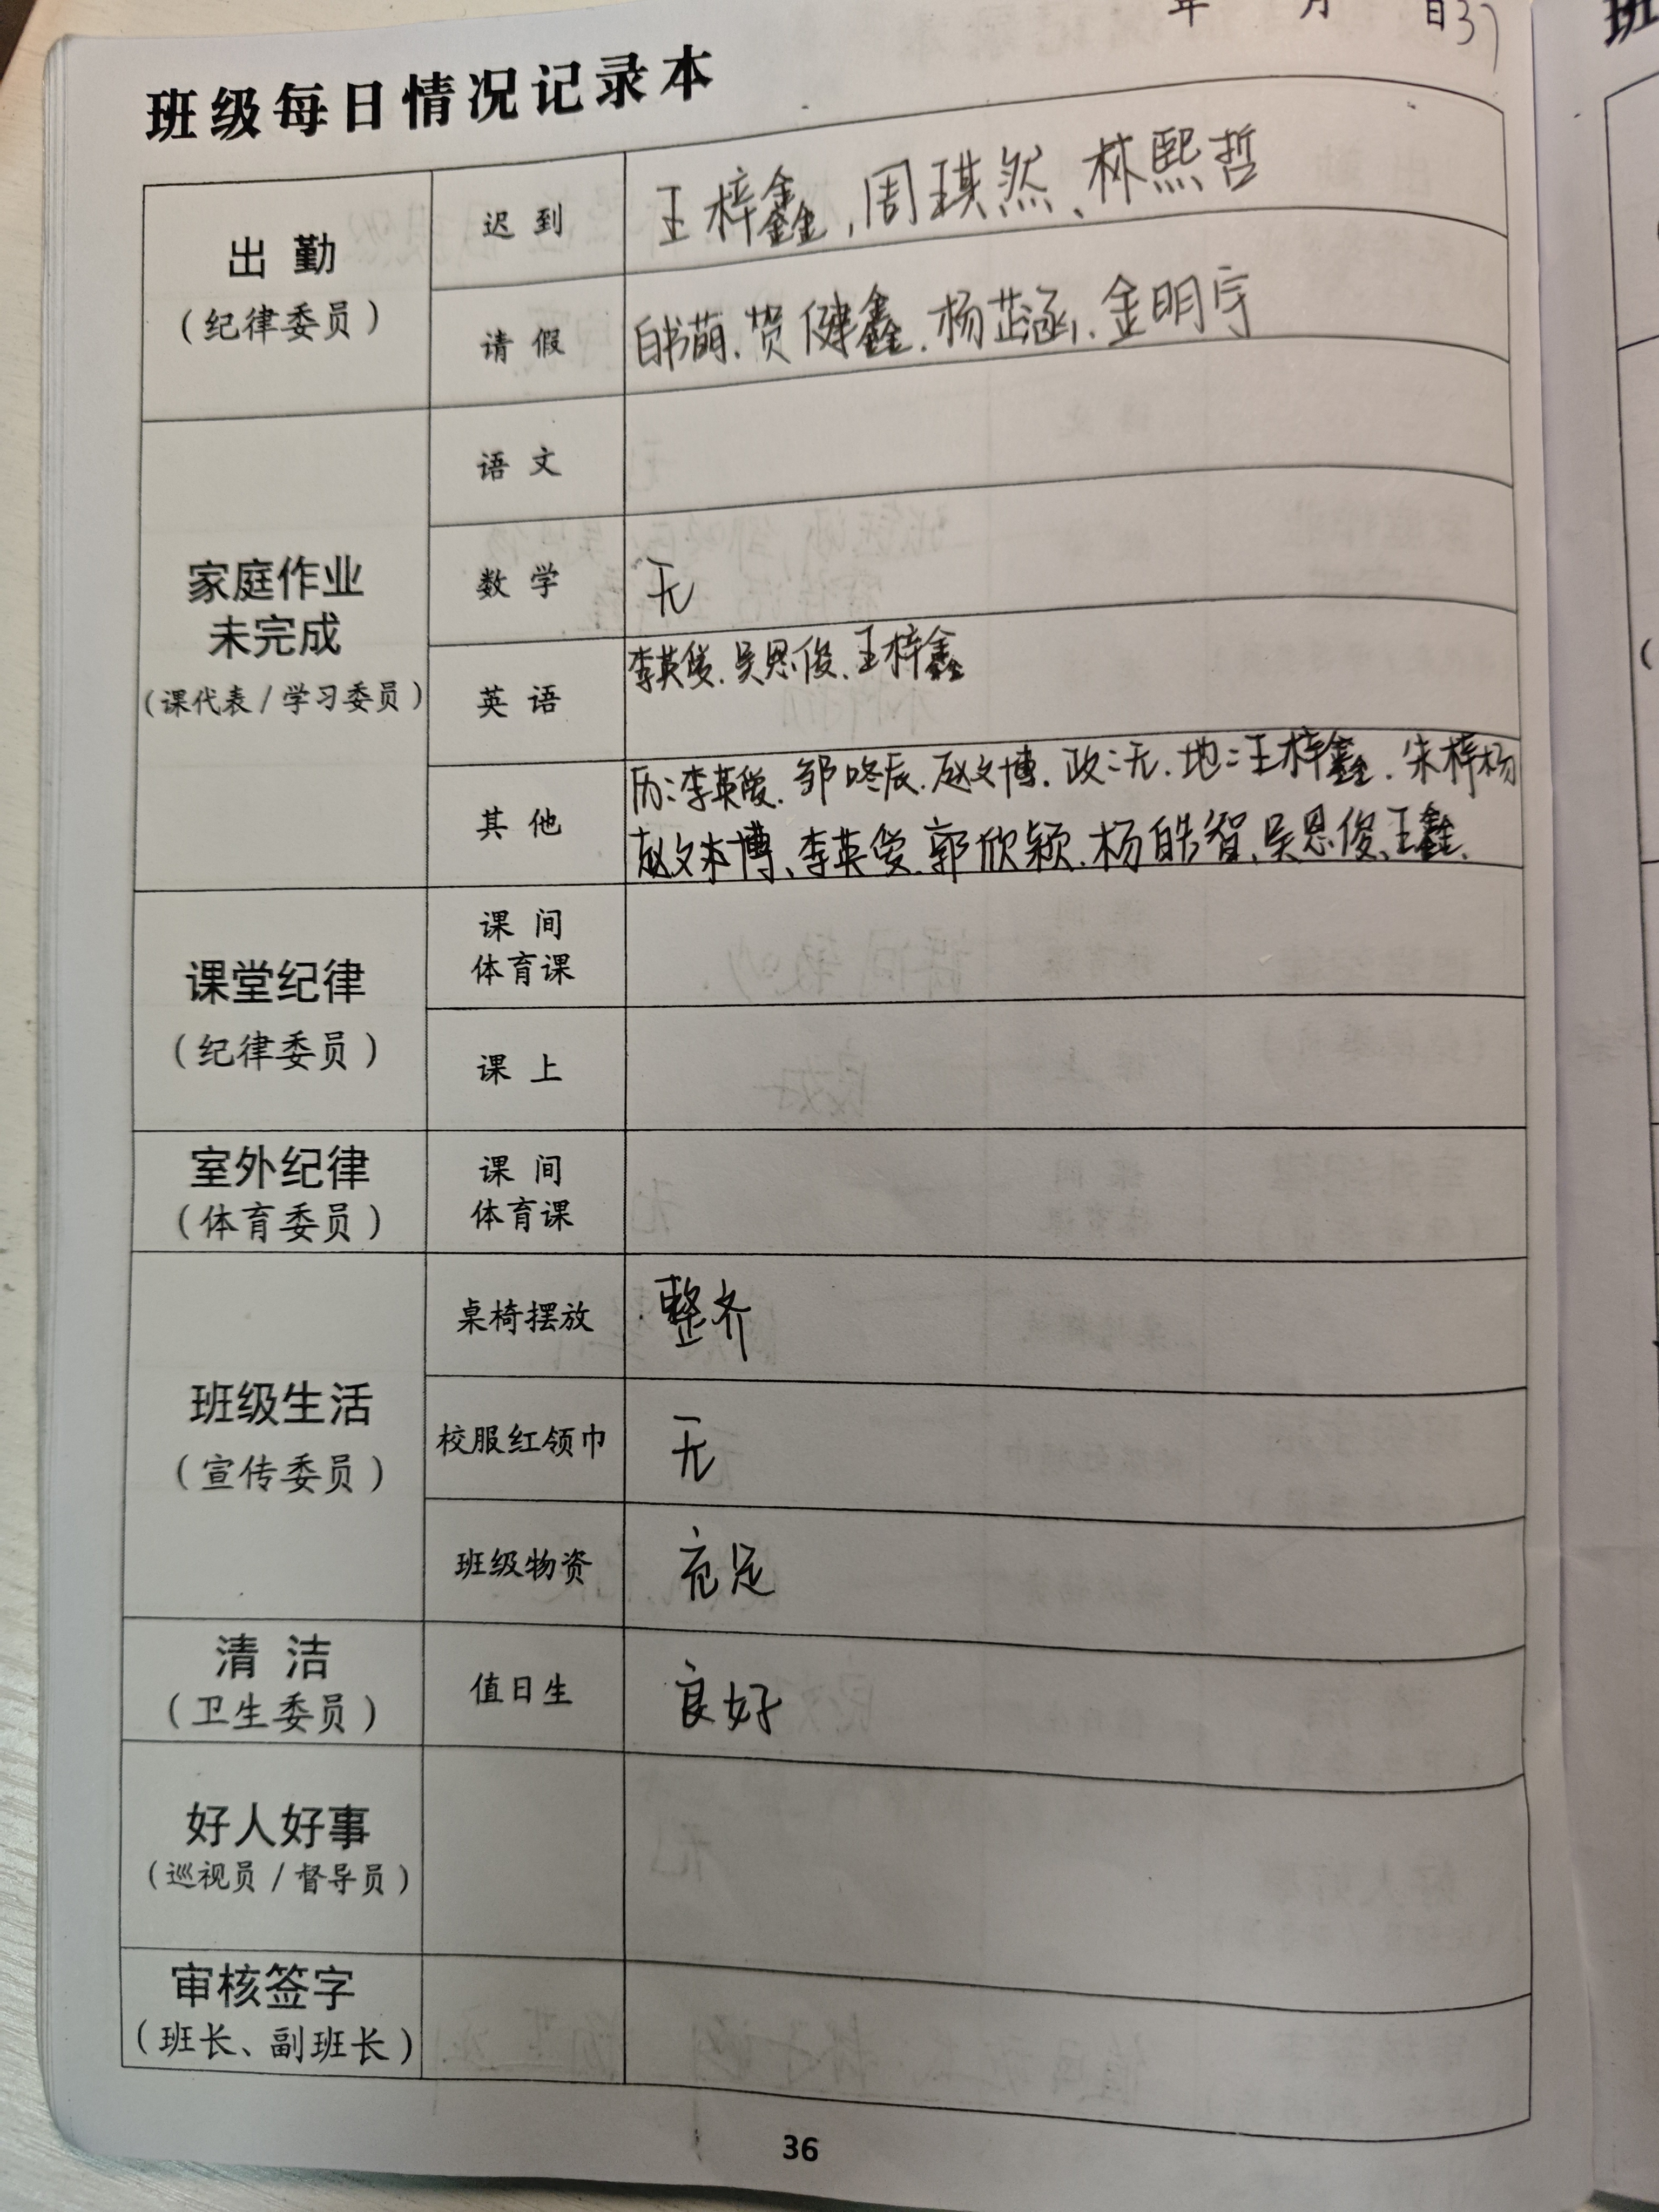 年 月 日37
班级每日情况记录本
出 勤
(纪律委员)
迟 到
王梓鑫,周琪然、林熙哲
请 假
白书萌、贺健鑫、杨芷涵、金明宇
家庭作业
未完成
(课代表/学习委员)
语 文
数 学
无
英 语
李英爱、吴恩俊、王梓鑫
其 他
历:李英爱、邹咚辰、赵文博、政:无、地:王梓鑫、朱梓杨
赵文博、李英爱、郭欣颖、杨皓智、吴恩俊、王鑫、
课堂纪律
(纪律委员)
课 间
体育课
课 上
室外纪律
(体育委员)
课 间
体育课
班级生活
(宣传委员)
桌椅摆放
整齐
校服红领巾
无
班级物资
充足
清 洁
(卫生委员)
值日生
良好
好人好事
(巡视员/督导员)
审核签字
(班长、副班长)
36